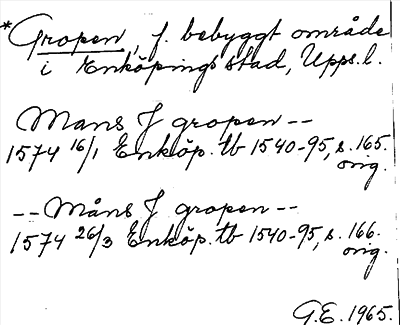 *Gropen, f. bebyggt område
i Enköpings stad, Upps.l.
Mans J gropen --
1574 16/1 Enköp. tb 1540-95, s. 165.
orig.
-- Måns J gropen --
1574 26/3 Enköp. tb 1540-95, s. 166.
orig.
G.E. 1965.